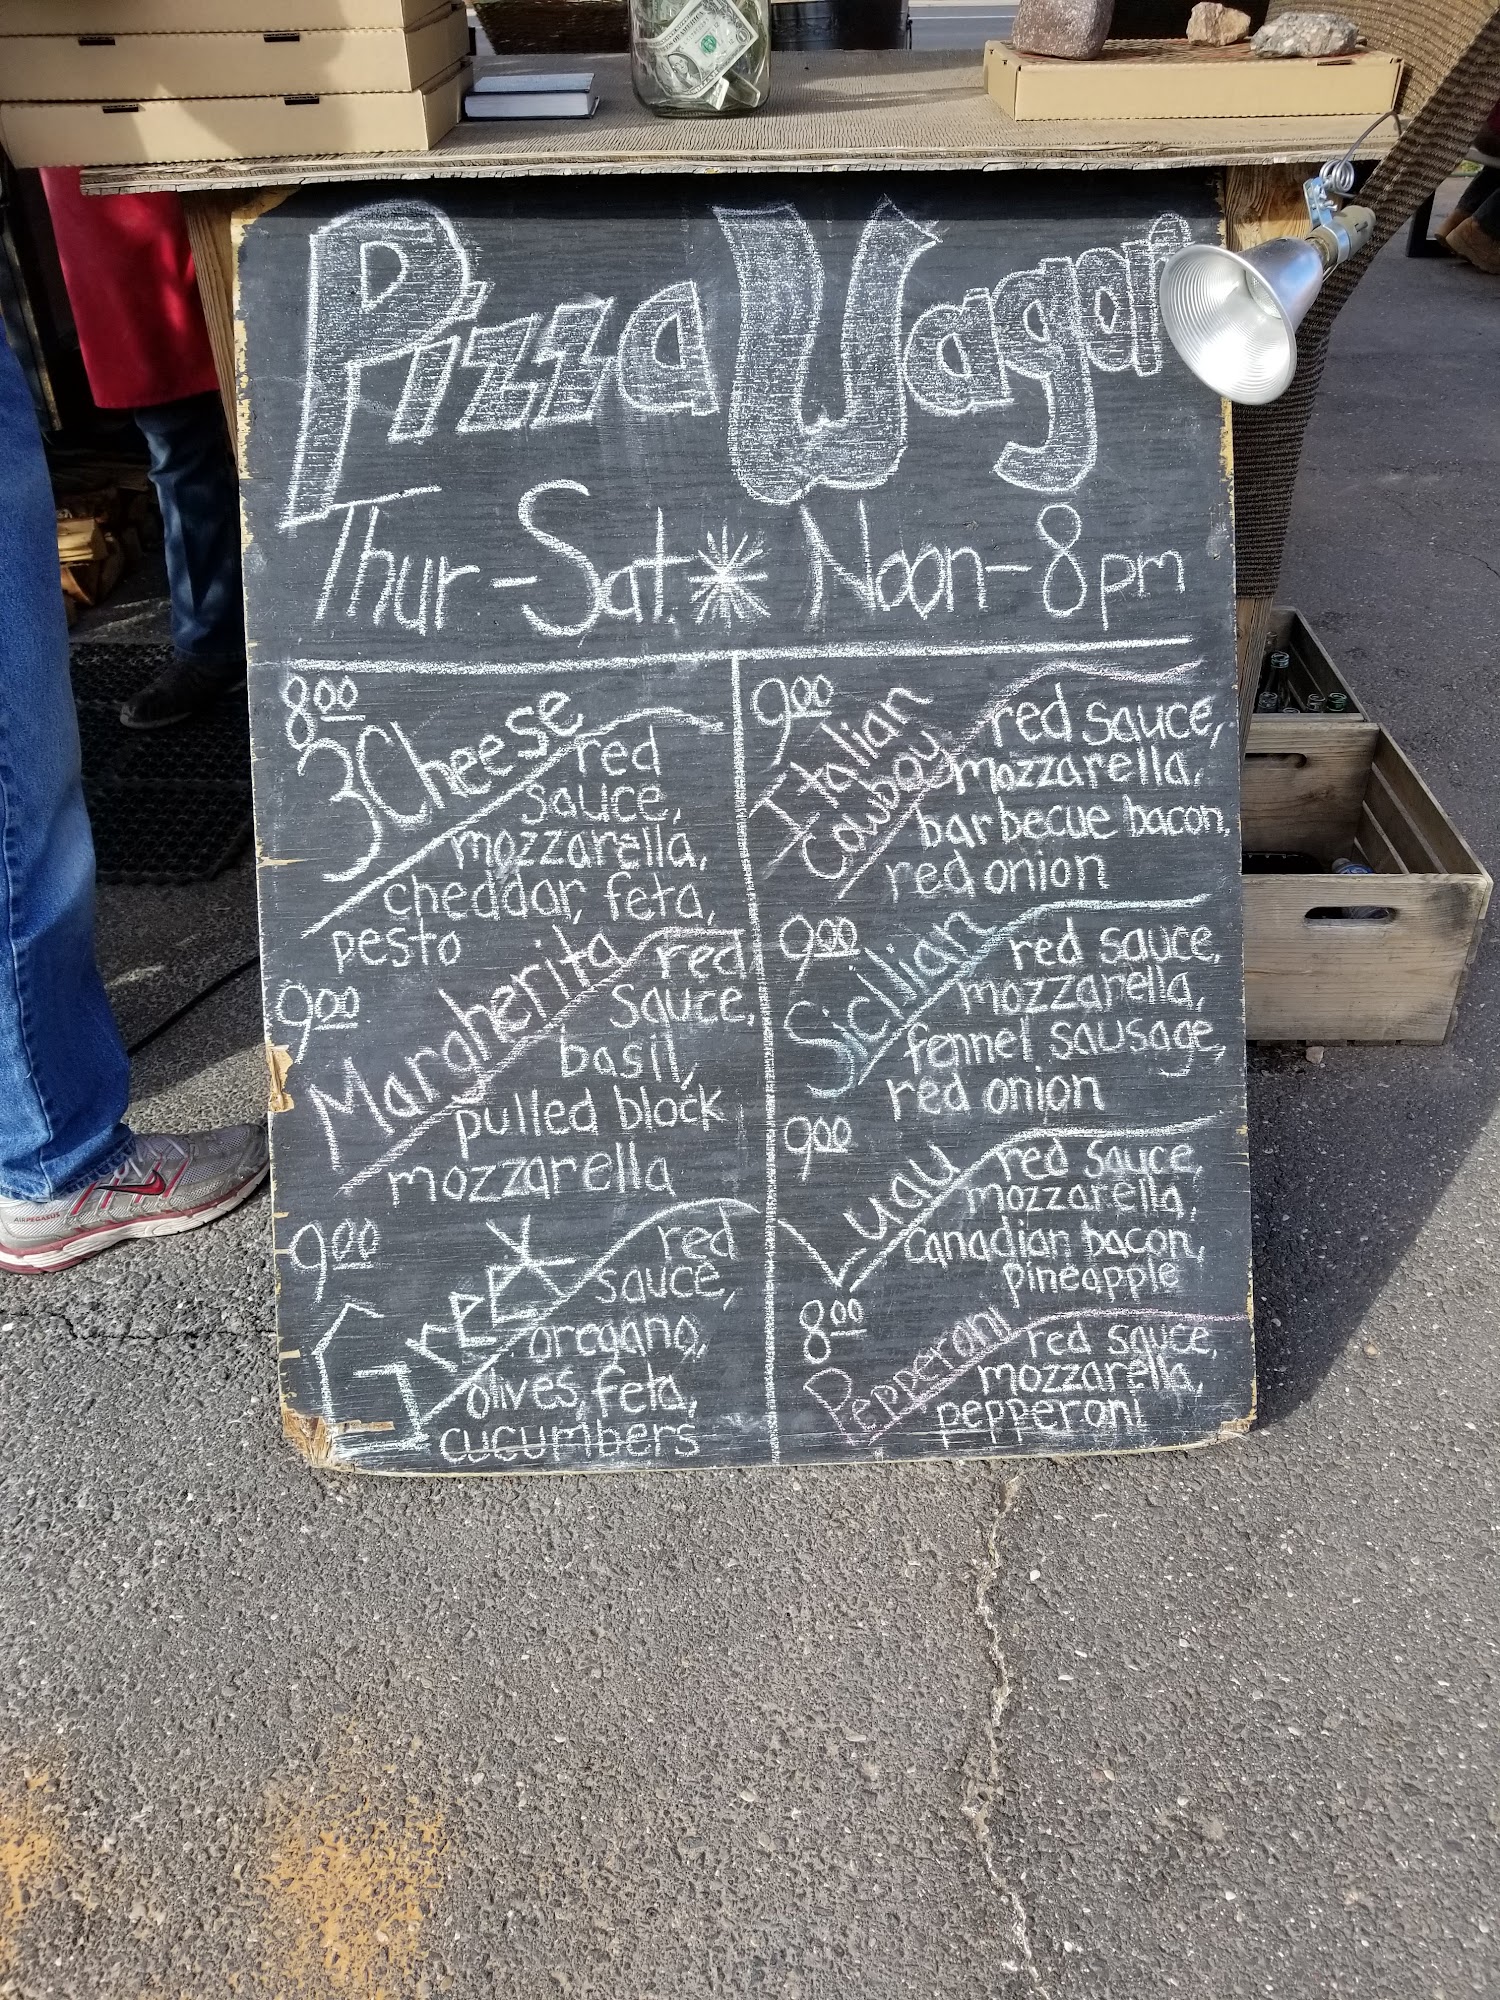 Pizza Vagari
Thur-Sat. * Noon-8pm
8.00
3 Cheese
red
sauce,
mozzarella,
cheddar, feta,
pesto
9.00
Margherita
red
sauce,
basil,
pulled block
mozzarella
9.00
Greek
red
sauce,
oregano,
olives, feta,
cucumbers
9.00
Italian
Cowboy
red sauce,
mozzarella,
barbecue bacon,
red onion
9.00
Sicilian
red sauce,
mozzarella,
fennel sausage,
red onion
9.00
Luau
red sauce,
mozzarella,
Canadian bacon,
pineapple
8.00
Pepperoni
red sauce,
mozzarella,
pepperoni
AIR PEGASUS